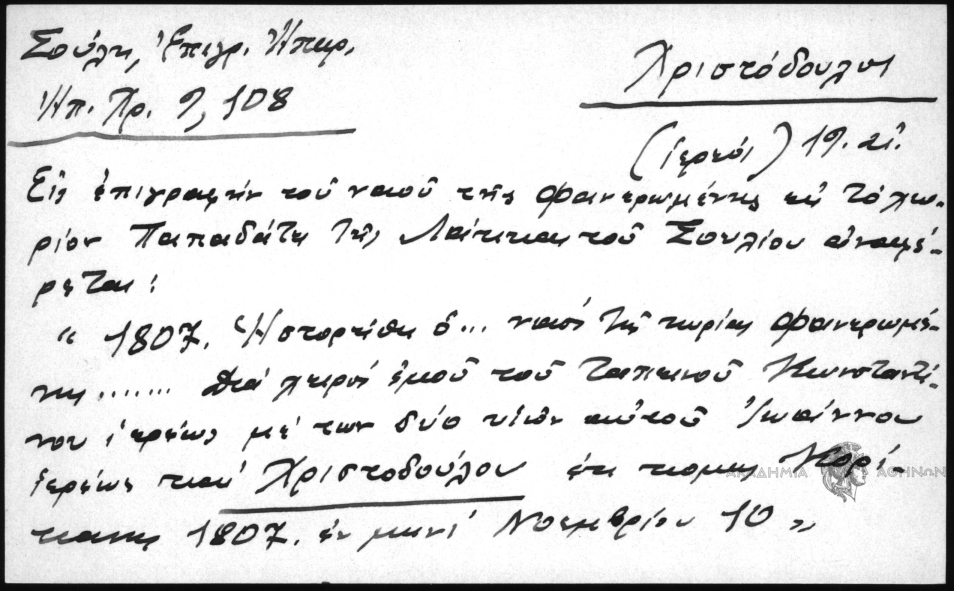 Σούλη, Ἐπιγρ. Ἠπειρ.
Ἠπ. Χρ. 9, 108
Χριστόδουλος
(ἱερεύς) 19. αἰ.
Εἰς ἐπιγραφὴν τοῦ ναοῦ τῆς Φανερωμένης εἰς τὸ χω-
ρίον Παπαδάτη τῆς Λάκκας τοῦ Σουλίου ἀναφέ-
ρεται:
" 1807. Ἡστορίθη ὁ... ναός τῆς κυρίας Φανερωμέ-
νης....... διά χειρός ἐμοῦ τοῦ ταπεινοῦ Κωνσταντί-
νου ἱερέως μέ των δύο υἱῶν αὐτοῦ Ἰωάννου
ἱερέως καί Χριστοδούλου ἐκ κώμης Κορί-
1807. ἐν μηνί Νοεμβρίου 10 "
ΑΚΑΔΗΜΙΑ ΑΘΗΝΩΝ